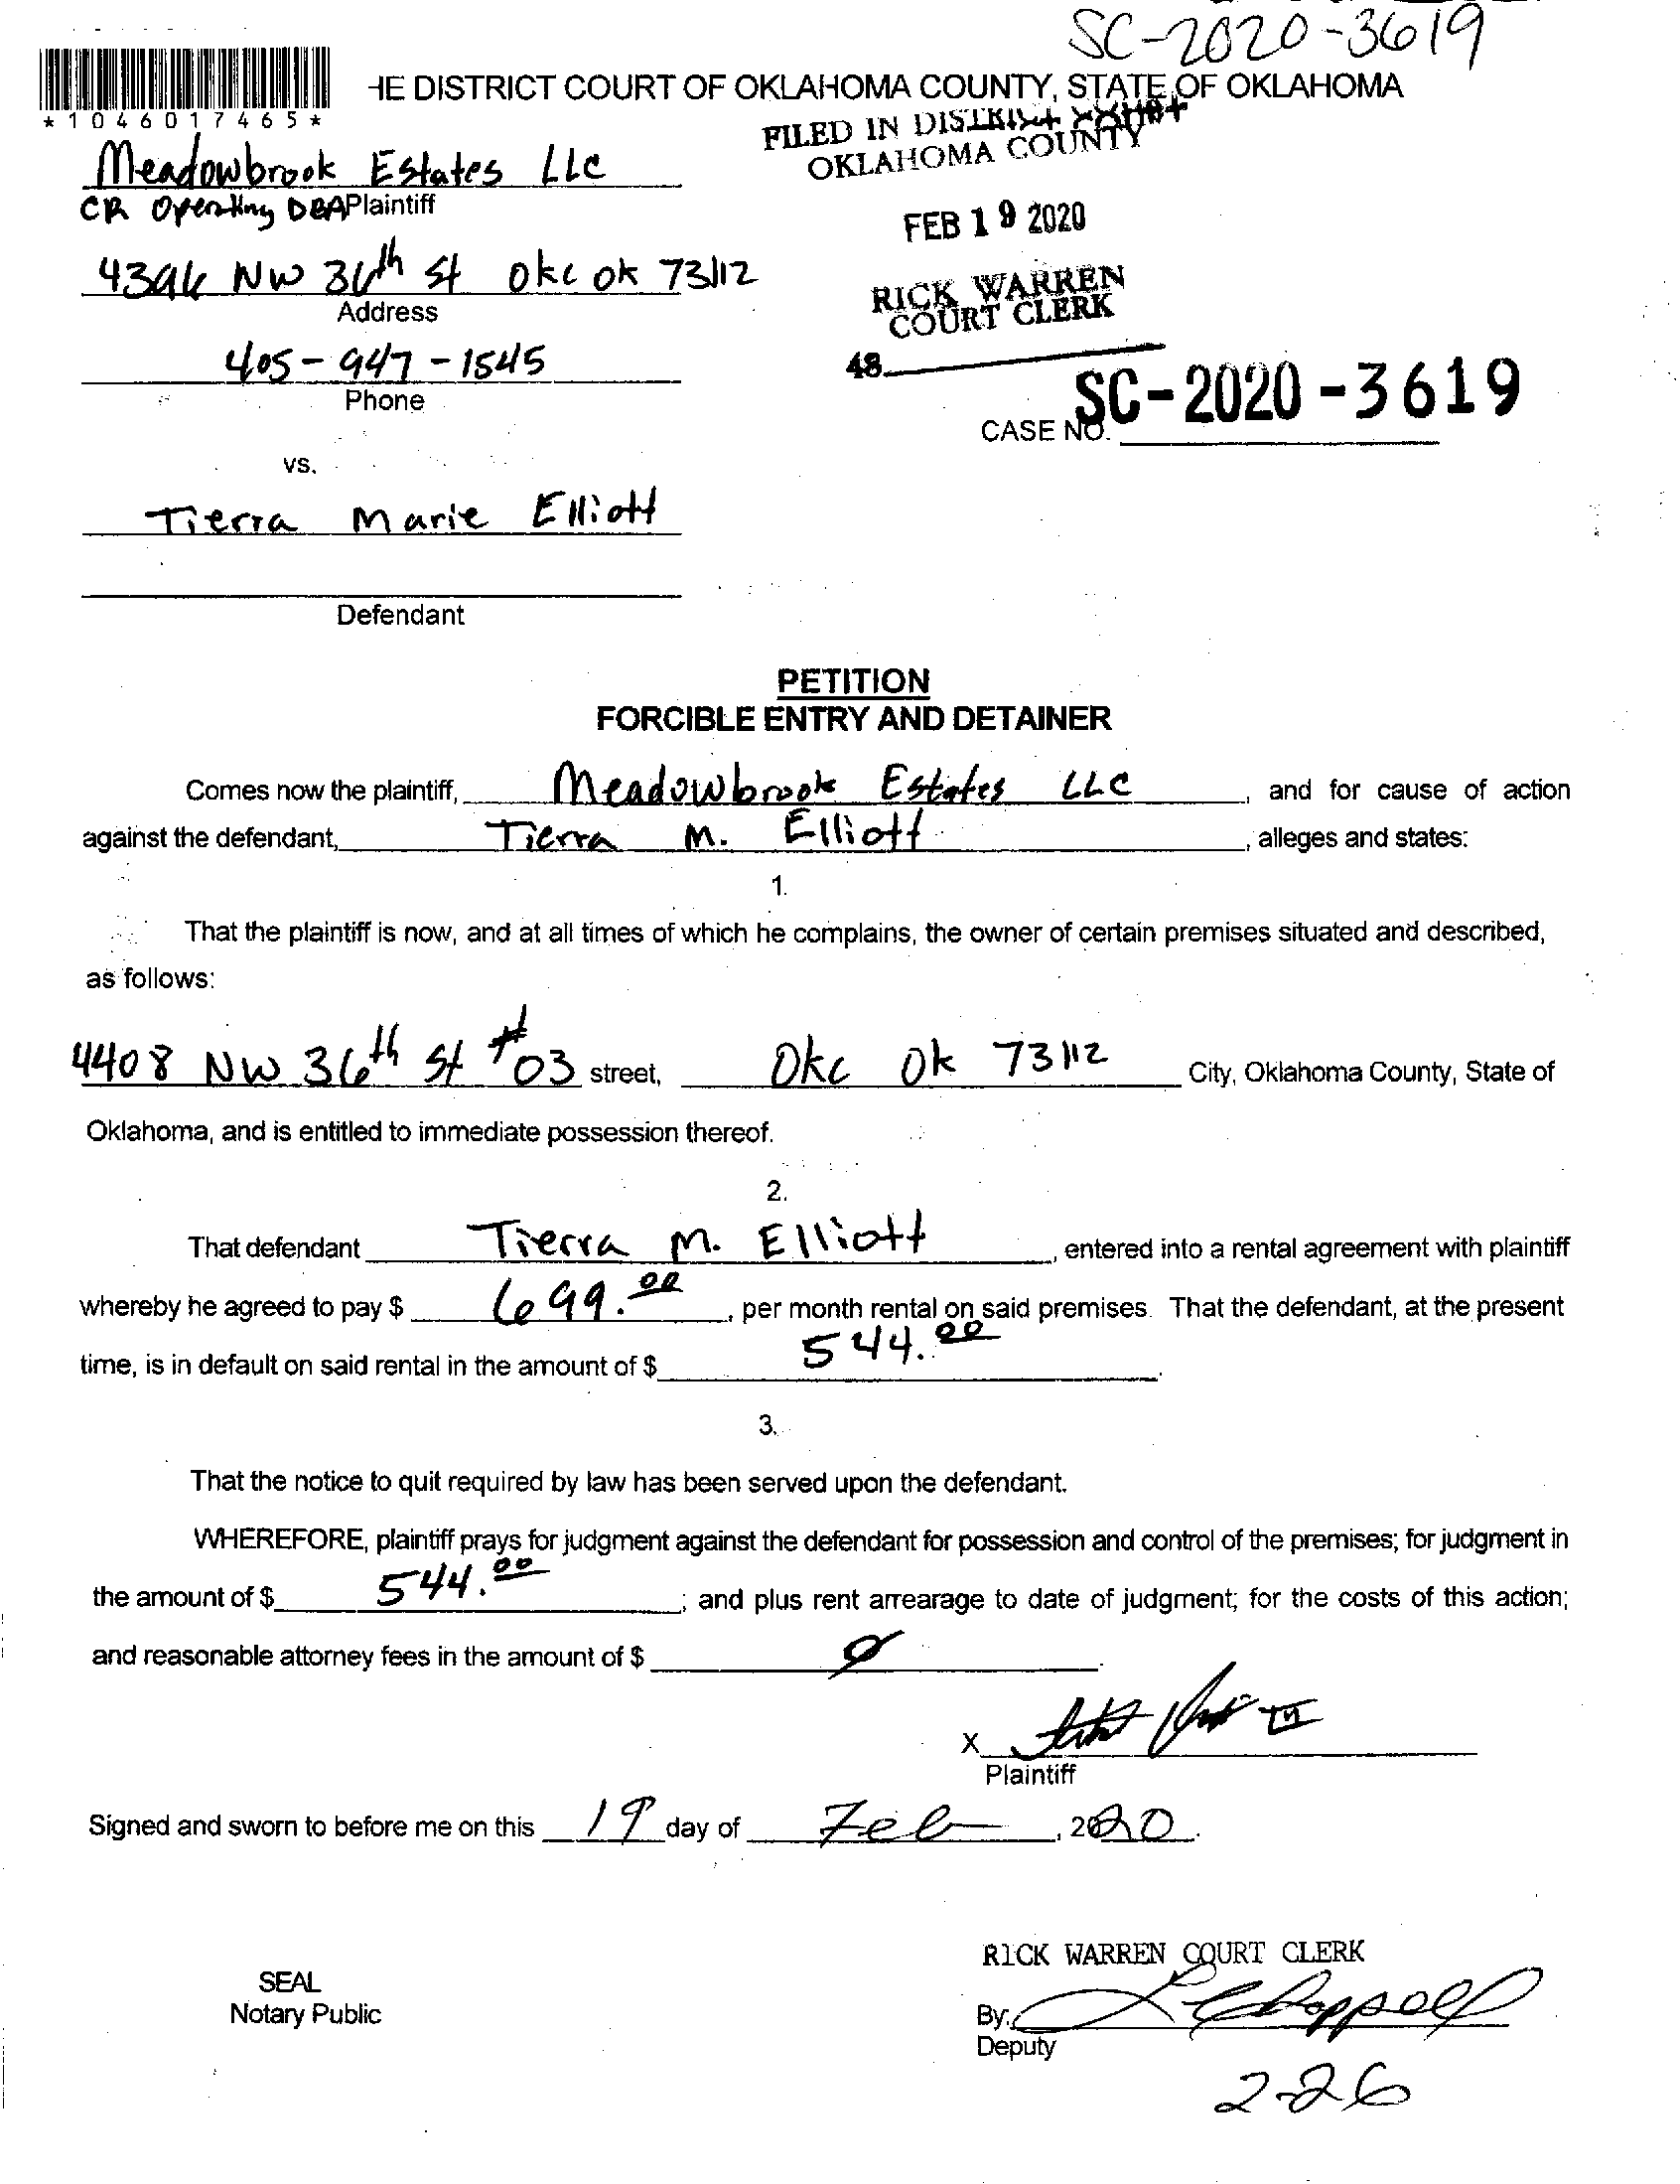 SC-2020-3619
HE DISTRICT COURT OF OKLAHOMA COUNTY, STATE OF OKLAHOMA
*1046017465*
FILED IN DISTRICT COURT
OKLAHOMA COUNTY
Meadowbrook Estates LLC
CR Operating DBA Plaintiff
FEB 19 2020
4396 NW 36th St OKC OK 73112
Address
RICK WARREN
COURT CLERK
405-947-1545
Phone
48
SC-2020-3619
CASE NO.
vs.
Tierra Marie Elliott
Defendant
PETITION
FORCIBLE ENTRY AND DETAINER
Comes now the plaintiff, Meadowbrook Estates LLC, and for cause of action
against the defendant, Tierra M. Elliott, alleges and states:
1.
That the plaintiff is now, and at all times of which he complains, the owner of certain premises situated and described,
as follows:
4408 NW 36th St #03 street, Okc Ok 73112 City, Oklahoma County, State of
Oklahoma, and is entitled to immediate possession thereof.
2.
That defendant Tierra M. Elliott, entered into a rental agreement with plaintiff
whereby he agreed to pay $ 699.00, per month rental on said premises. That the defendant, at the present
time, is in default on said rental in the amount of $ 544.00.
3.
That the notice to quit required by law has been served upon the defendant.
WHEREFORE, plaintiff prays for judgment against the defendant for possession and control of the premises; for judgment in
the amount of $ 544.00; and plus rent arrearage to date of judgment; for the costs of this action;
and reasonable attorney fees in the amount of $ 0.
X
Plaintiff
Signed and sworn to before me on this 19 day of Feb, 2020.
RICK WARREN COURT CLERK
SEAL
Notary Public
By:
Deputy
2-26